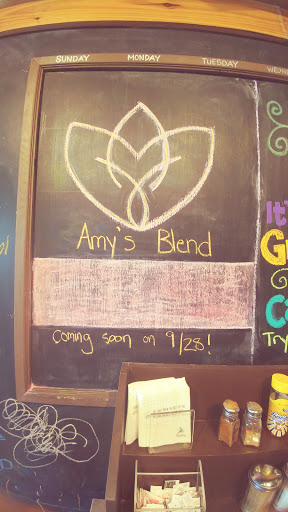 SUNDAY MONDAY TUESDAY
Amy's Blend
Coming soon on 9/28!
Try